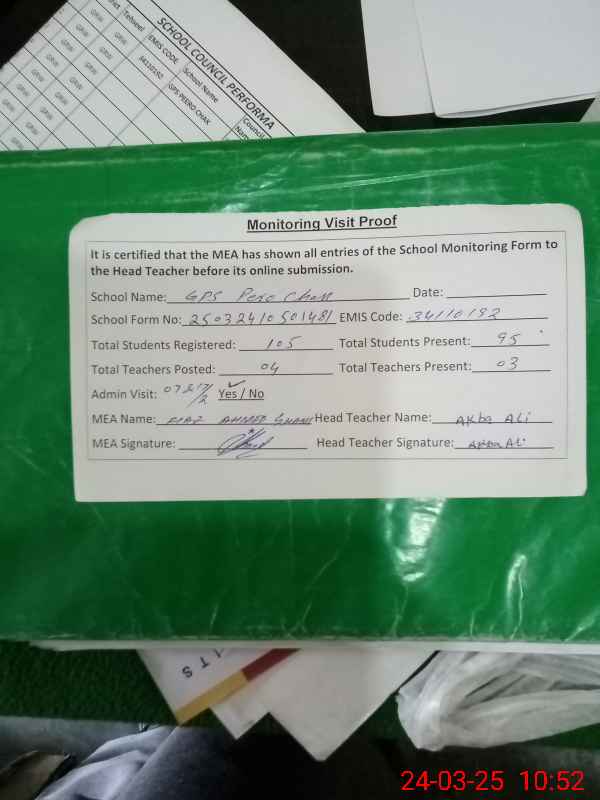 SCHOOL COUNCIL PERFORMA
Tehseel EMIS CODE School Name Council
GRW GRW 34110192 GPS PEERO CHAK
Monitoring Visit Proof
It is certified that the MEA has shown all entries of the School Monitoring Form to
the Head Teacher before its online submission.
School Name: GPS Pero Chak Date:
School Form No: 25032410501481 EMIS Code: 34110192
Total Students Registered: 105 Total Students Present: 95
Total Teachers Posted: 04 Total Teachers Present: 03
Admin Visit: Yes / No
MEA Name: AHMED Head Teacher Name: Akba ALi
MEA Signature: Head Teacher Signature: Akba ALi
ITS
24-03-25 10:52